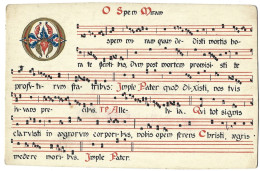 O Spem Miram
spem miram quam dedisti mortis ho-
ra te flentibus, dum post mortem promisisti te
profuturum fratribus: Imple Pater quod dixisti, nos tuis
juvans precibus. T.P. Alleluia. Qui tot signis
claruisti in aegrorum corporibus, nobis opem ferens Christi, aegris
medere moribus. Imple Pater.